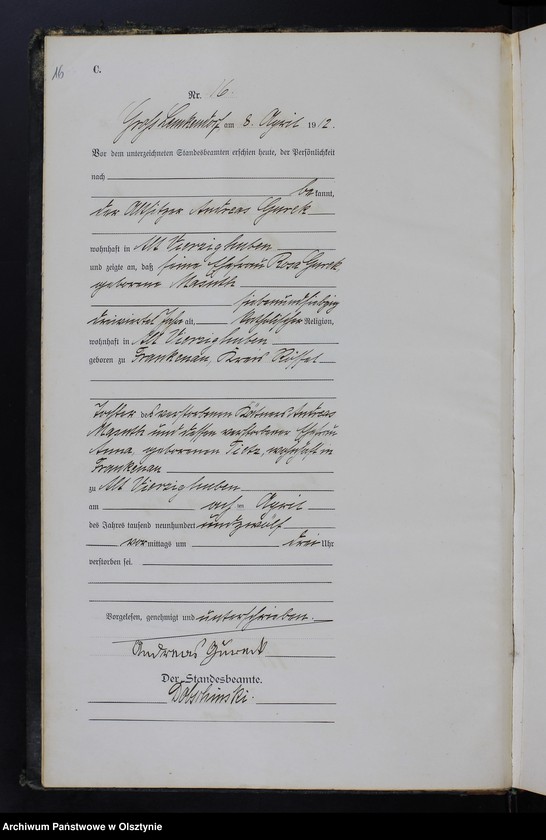 16
C.
Nr. 16.
Groß Lemkendorf am 8. April 1912.
Vor dem unterzeichneten Standesbeamten erschien heute, der Persönlichkeit
nach
bekannt,
der Altsitzer Andreas Gurek
wohnhaft in Alt Vierzighuben
und zeigte an, daß seine Ehefrau Rosa Gurek,
geborene Masuth
siebenundsiebzig
dreiviertel Jahr alt, katholischer Religion,
wohnhaft in Alt Vierzighuben
geboren zu Frankenau, Kreis Rössel
Tochter des verstorbenen Kätners Andreas
Masuth und dessen verstorbener Ehefrau
Anna, geborenen Tietz, wohnhaft in
Frankenau
zu Alt Vierzighuben
am acht April
des Jahres tausend neunhundert und zwölf
vormittags um drei Uhr
verstorben sei.
Vorgelesen, genehmigt und unterschrieben.
Andreas Gureck
Der Standesbeamte.
Archiwum Państwowe w Olsztynie